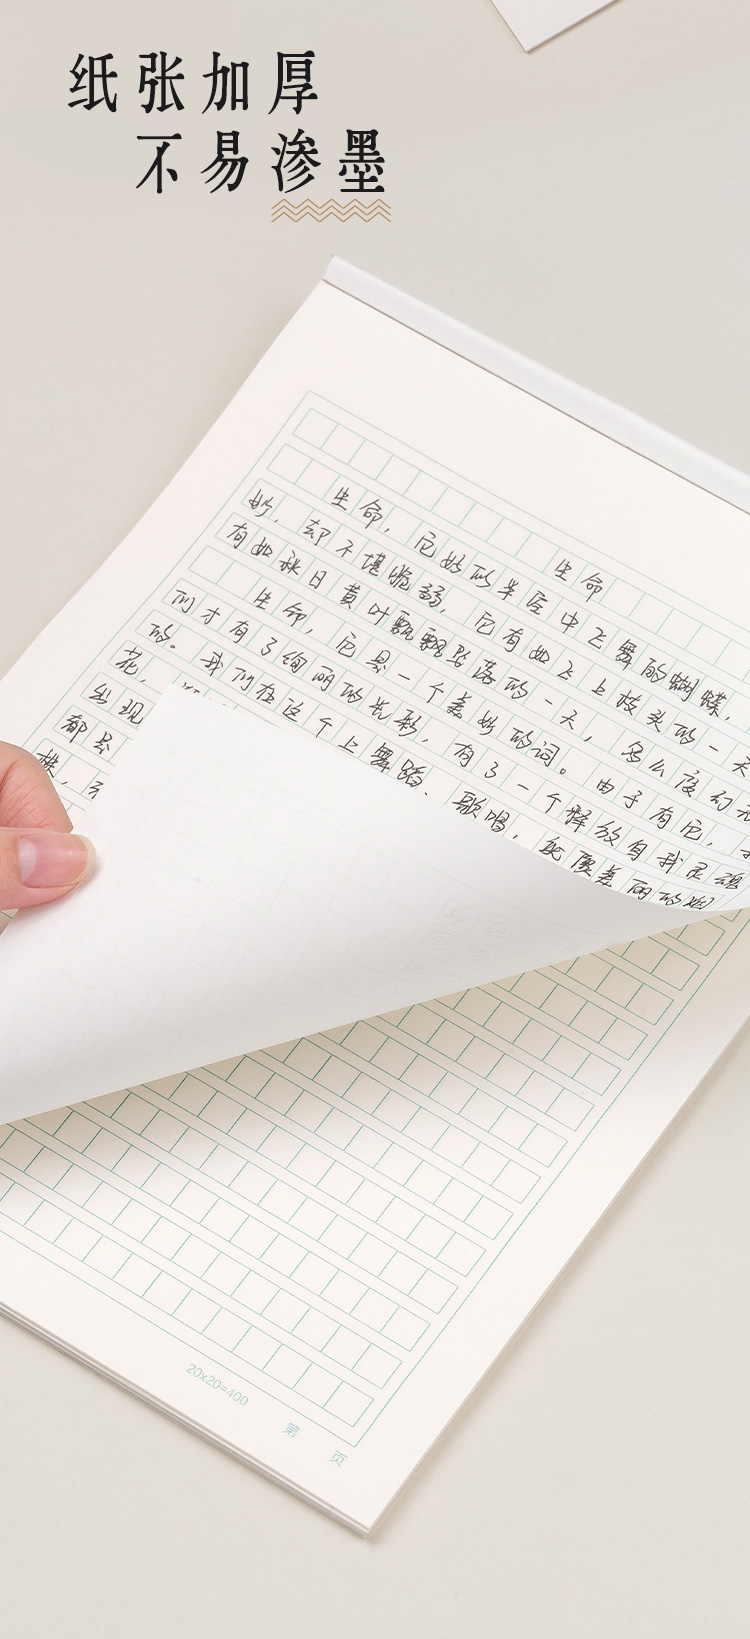 纸张加厚
不易渗墨
生命
生命，它好似半空中飞舞的蝴蝶，
妙，却不堪脆弱，它有如飞上枝头的一天
有如秋日黄叶飘飘坠落的一天，多么度幻
生命，它是一个美妙的词。由于有它，
们才有了绚丽的光彩，有了一个释放自我灵魂
的。我们在这个上舞蹈、歌唱，
花，
出现
都是
株，
20x20=400
第 页